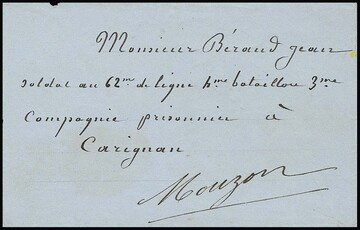 Monsieur Béraud Jean
soldat au 62me de ligne 4me bataillon 3me
Compagnie prisonnier à
Carignan
Mouzon